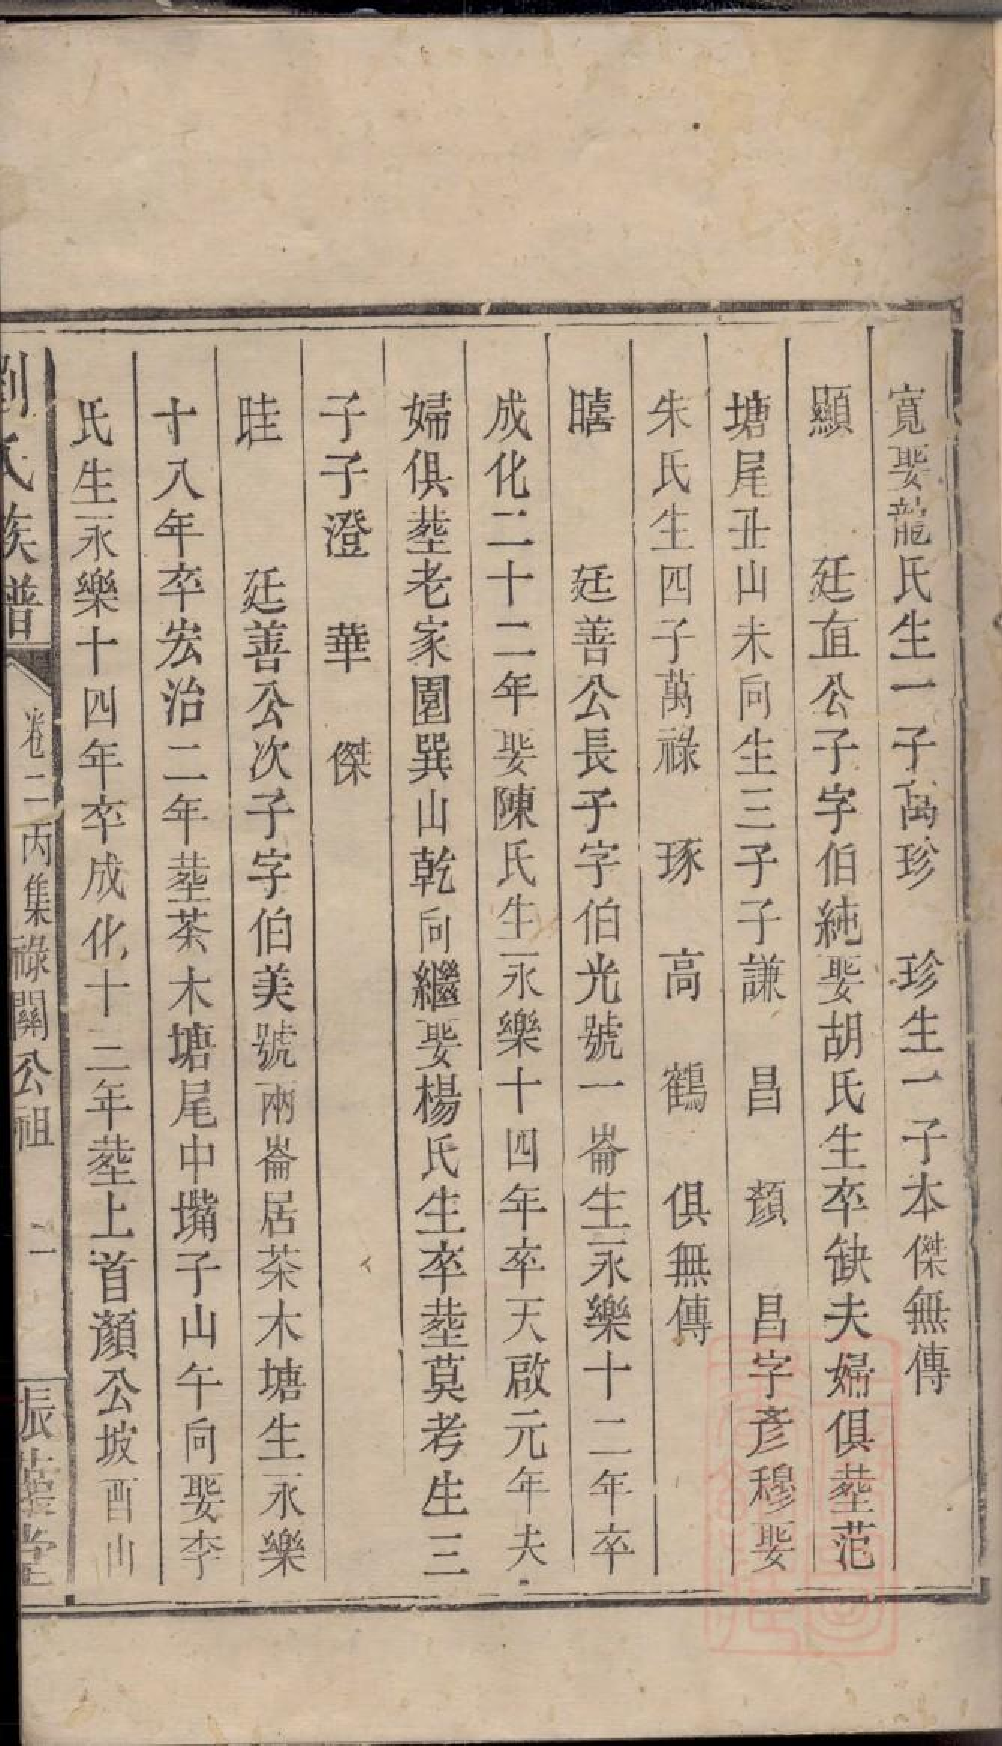 寬娶龍氏生一子萬珍　珍生一子本傑無傳
顯　　廷直公子字伯純娶胡氏生卒缺夫婦俱塟范
塘尾丑山未向生三子子謙　昌　顏　昌字彥穆娶
朱氏生四子萬祿　琢　高　鶴　俱無傳
瞦　　廷善公長子字伯光號一崙生永樂十二年卒
成化二十二年娶陳氏生永樂十四年卒天啟元年夫
婦俱塟老家園巽山乾向繼娶楊氏生卒塟莫考生三
子子澄　華　傑
眭　　廷善公次子字伯美號兩崙居茶木塘生永樂
十八年卒宏治二年塟茶木塘尾中嘴子山午向娶李
氏生永樂十四年卒成化十二年塟上首顏公坡酉山
劉氏族譜　卷二丙集祿開公祖　二　振藜堂